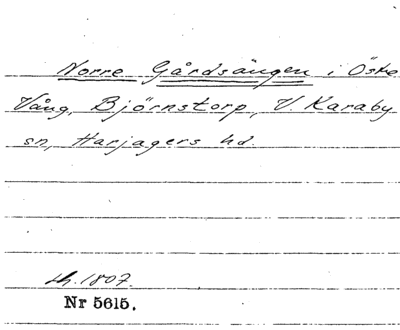 Norre Gårdsängen i Öske
Vång, Björnstorp, V. Karaby
sn, Harjagers hd.
1807.
Nr 5615.